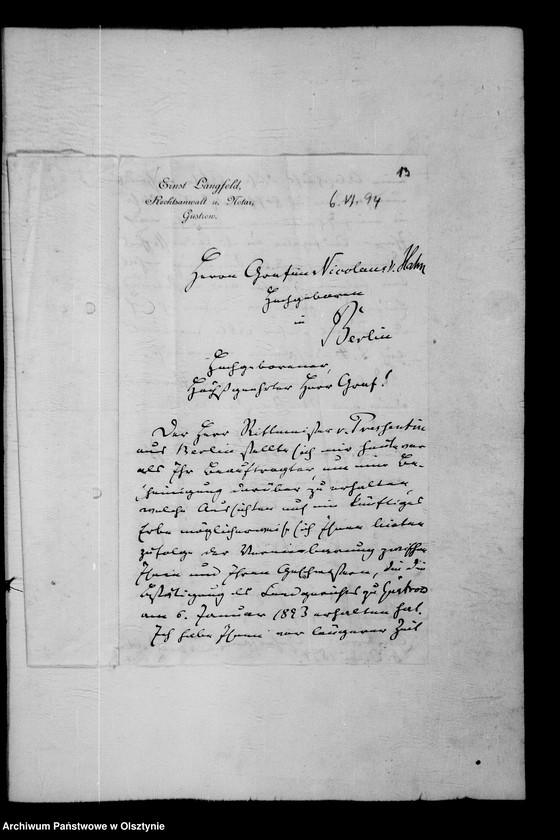 13
Ernst Langfeld,
Rechtsanwalt u. Notar,
Gustrow.
6. VI. 94
Herrn Grafen Nicolaus v. Hahn
Hochgeboren
in
Berlin
Hochgeborener,
Höchstgeehrter Herr Graf!
Der Herr Rittmeister v. Pressentin
aus Berlin stellte sich mir heute vor
als Ihr Beauftragter, um eine Be-
scheinigung darüber zu erhalten,
welche Aussichten auf ein künftiges
Erbe möglicherweise sich Ihnen bieten
zufolge der Vereinbarung zwischen
Ihnen und Ihren Geschwistern, die die
Bestätigung des Landgerichts zu Güstrow
am 6. Januar 1893 erhalten hat.
Ich habe Ihnen vor längerer Zeit
Archiwum Państwowe w Olsztynie